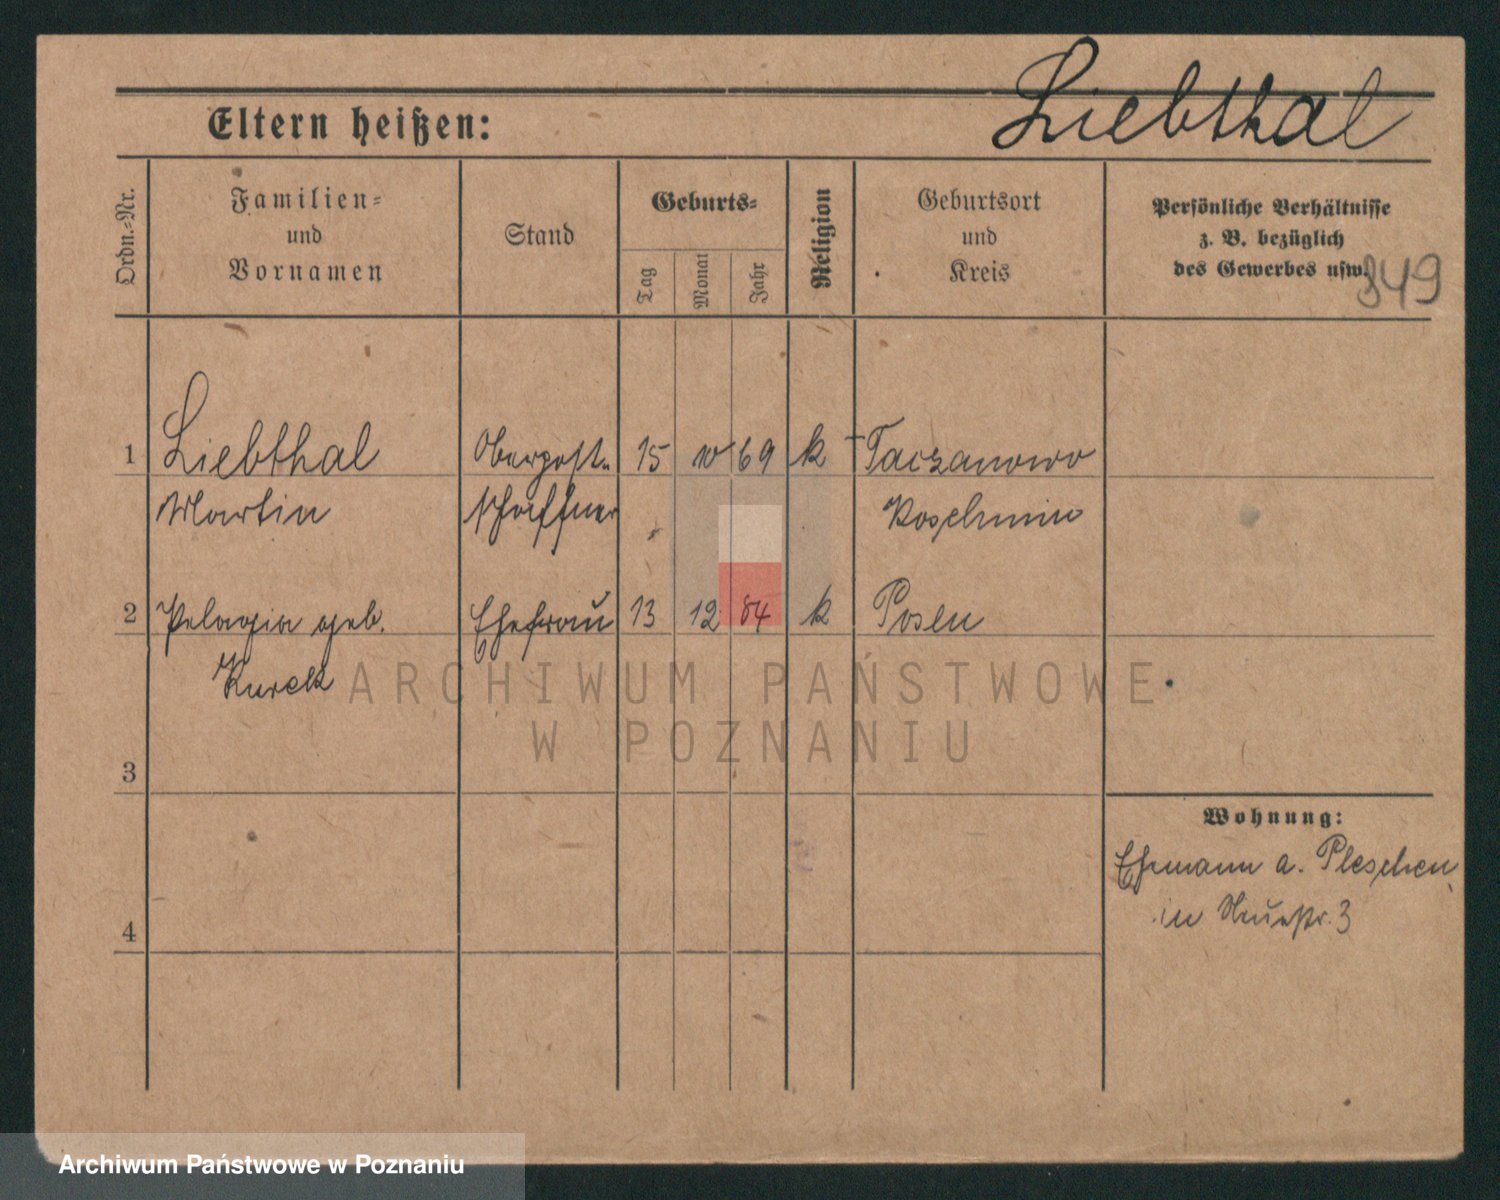 Liebthal
Eltern heißen:
Ordn.-Nr.
Familien-
und
Vornamen
Stand
Geburts-
Tag
Monat
Jahr
Religion
Geburtsort
und
Kreis
Persönliche Verhältnisse
z. B. bezüglich
des Gewerbes usw.
349
1 Liebthal Oberpost- 15 10 69 k Taczanowo
Martin schaffner Koschmin
2 Pelagia geb. Ehefrau 13 12 84 k Posen
Kurek
3
4
Wohnung:
Ehmann a. Pleschen
in Neuestr. 3
ARCHIWUM PAŃSTWOWE
W POZNANIU
Archiwum Państwowe w Poznaniu